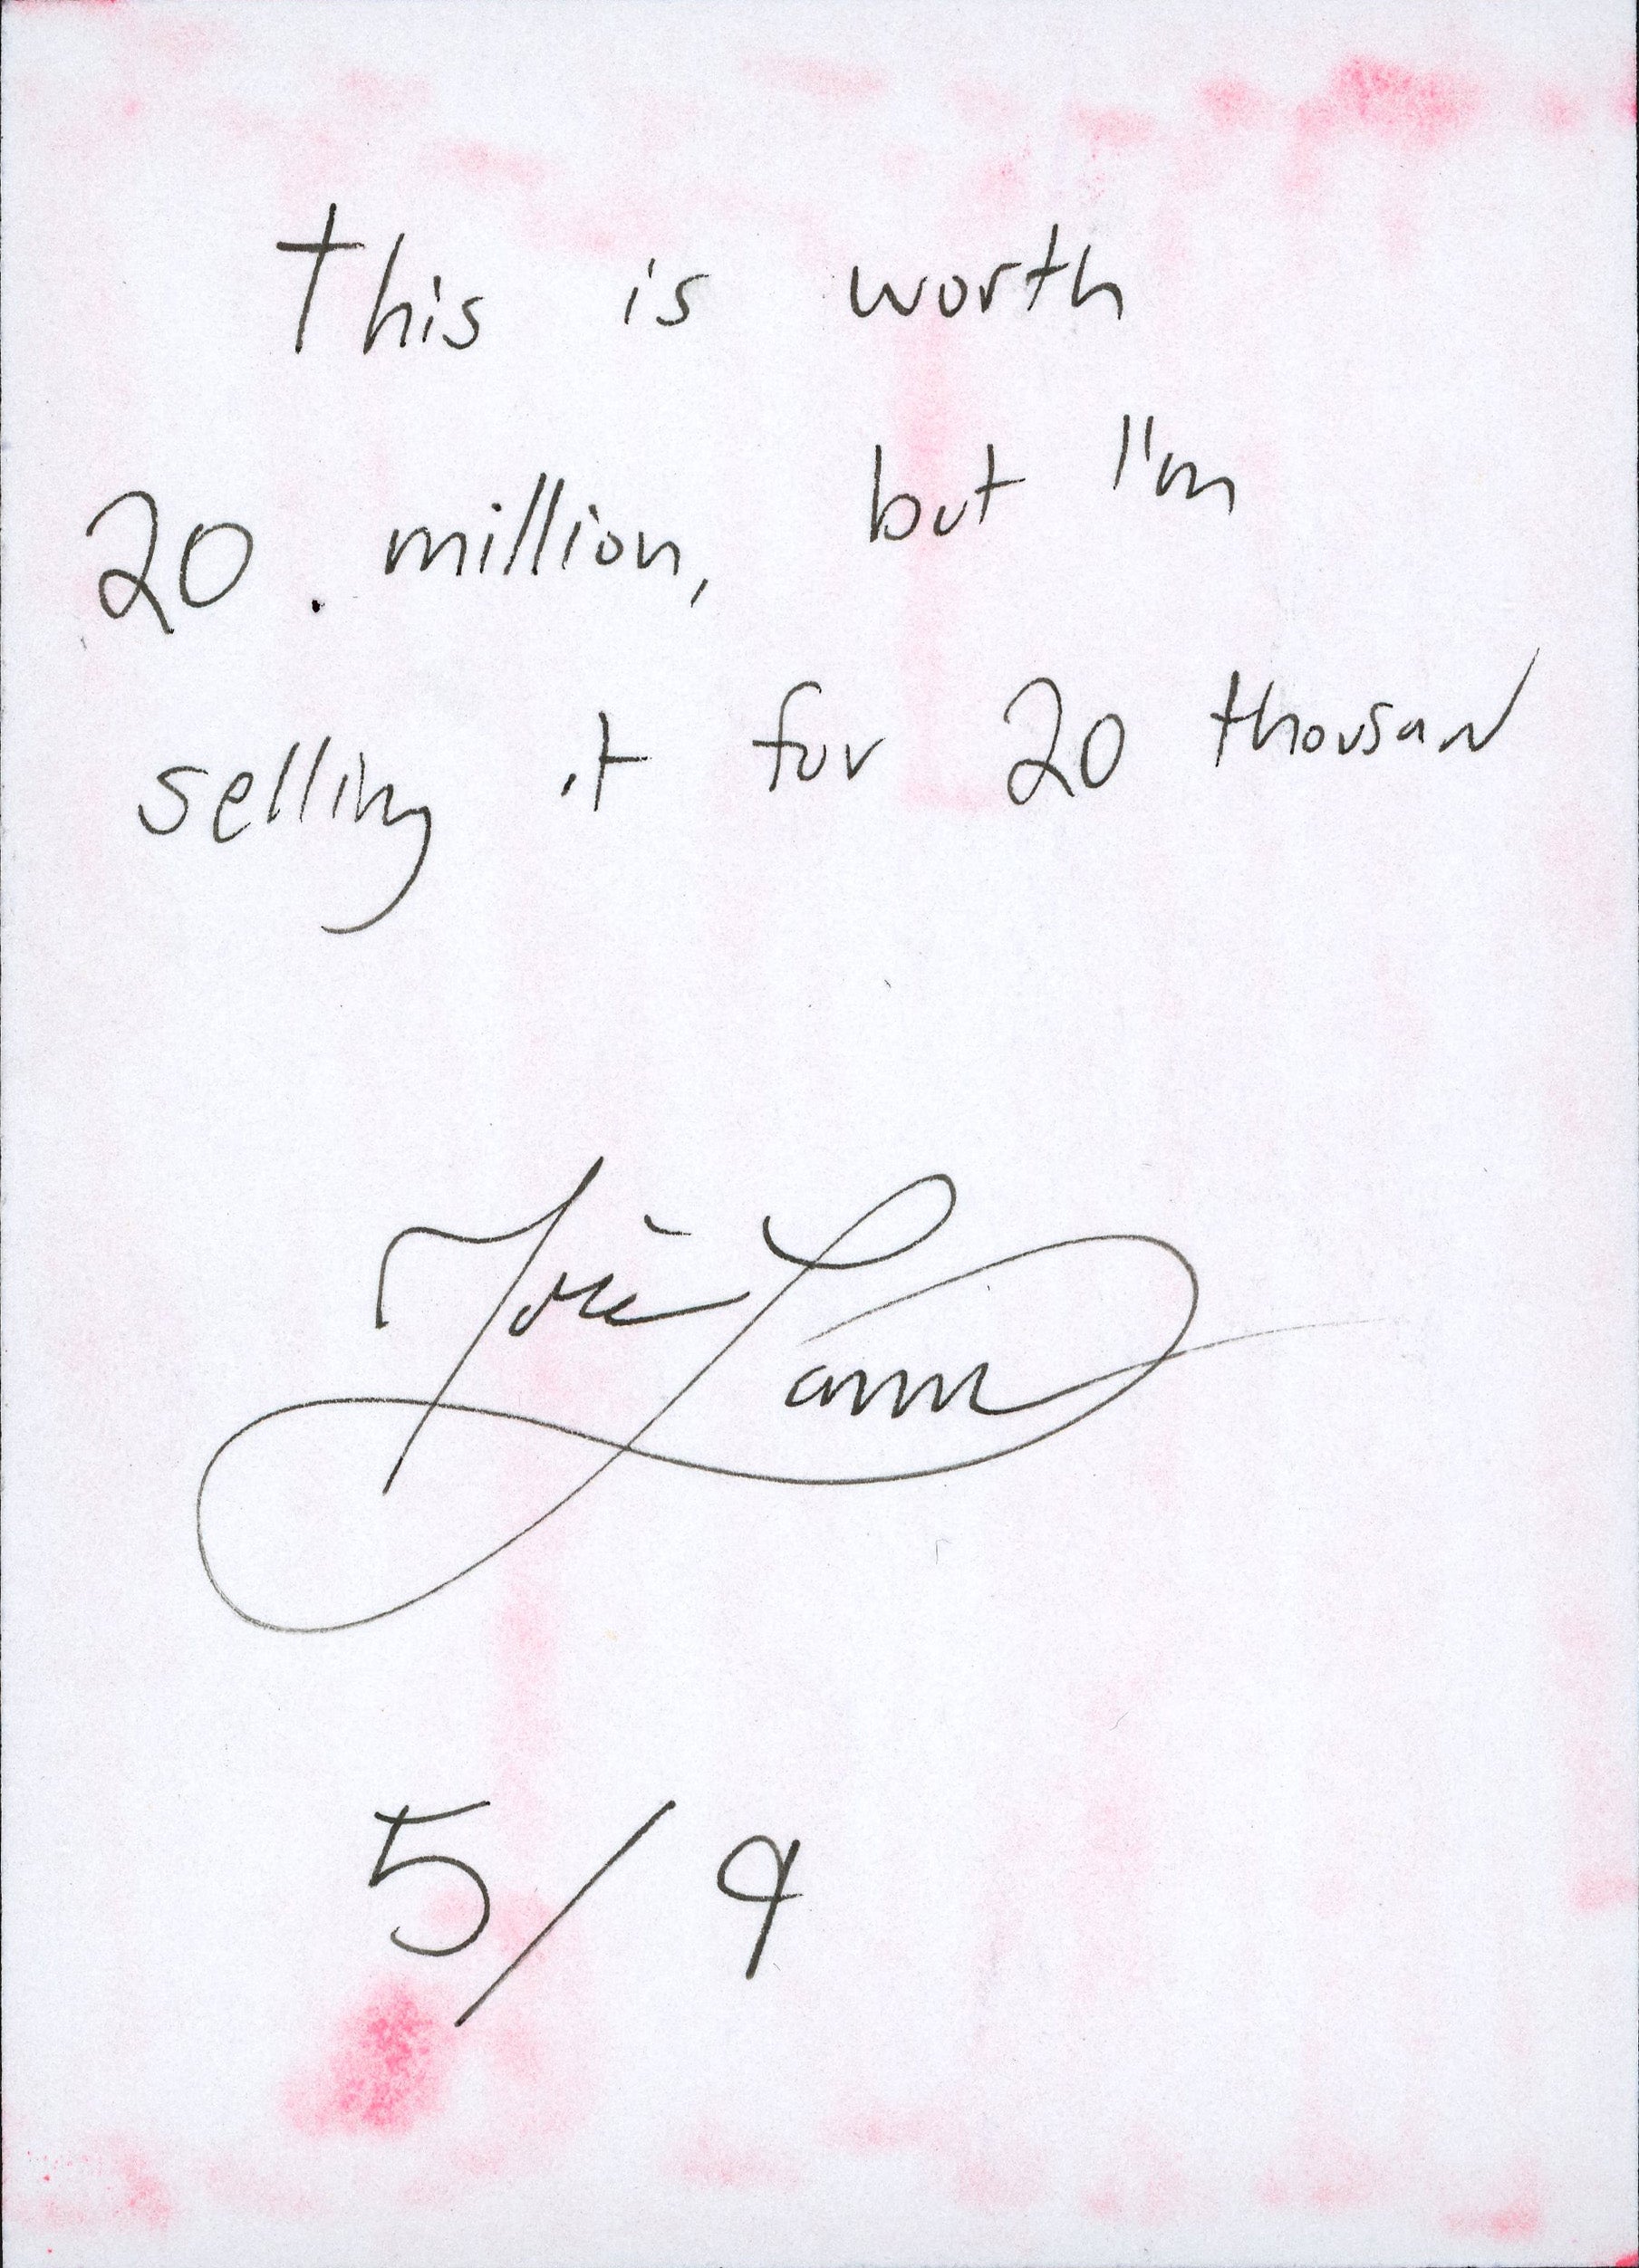 This is worth
20. million, but I'm
selling it for 20 thousand
José
5/9